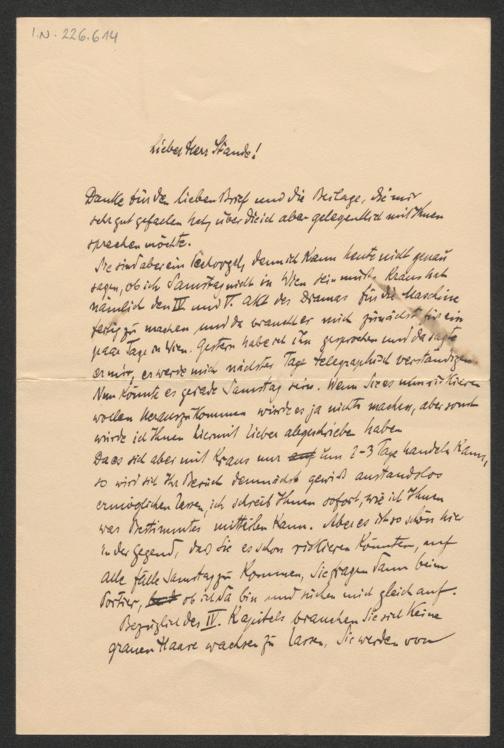 I.N. 226.614
Lieber Herr Stande!
Danke für den lieben Brief und die Beilage, die mir
sehr gut gefallen hat, über die ich aber gelegentlich mit Ihnen
sprechen möchte.
Sie sind aber ein Pechvogel, denn ich kann heute nicht genau
sagen, ob ich Samstag nicht in Wien sein müßte. Kraus hat
nämlich den IV und V. Akt des Dramas für die Maschine
fertig zu machen und da braucht er mich zunächst für ein
paar Tage in Wien. Gestern habe ich ihn gesprochen und da sagte
er mir, er werde mich nächster Tage telegraphisch verständigen
Nun könnte es gerade Samstag sein. Wenn Sie es nun riskieren
wollen herauszukommen würde es ja nichts machen, aber sonst
würde ich Ihnen hiermit lieber abgeschrieben haben
Da es sich aber mit Kraus nur um 2-3 Tage handeln kann,
so wird sich Ihr Besuch demnächst gewiß anstandslos
ermöglichen lassen, ich schreib Ihnen sofort, wie ich Ihnen
was Bestimmtes mitteilen kann. Aber es ist so schön hier
in der Gegend, daß Sie es schon riskieren könnten, auf
alle Fälle Samstag zu kommen, Sie fragen dann beim
Portier, ob ich da bin und suchen mich gleich auf.
Bezüglich des IV. Kapitels brauchen Sie sich keine
grauen Haare wachsen zu lassen, Sie werden von